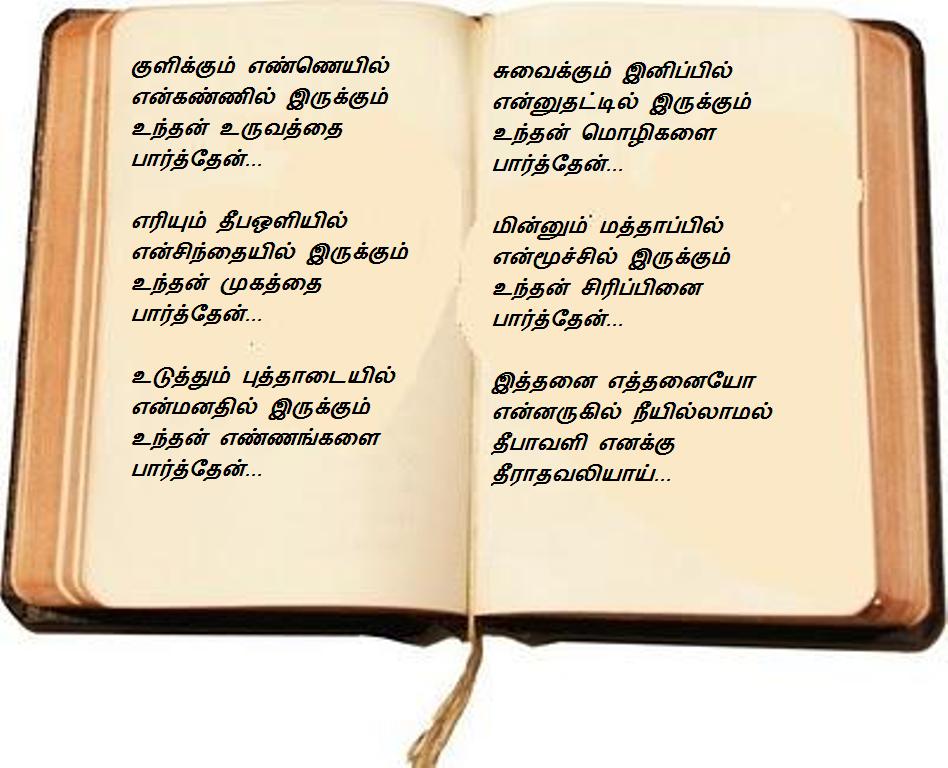 குளிக்கும் எண்ணெயில்
என்கண்ணில் இருக்கும்
உந்தன் உருவத்தை
பார்த்தேன்...
எரியும் தீபஒளியில்
என்சிந்தையில் இருக்கும்
உந்தன் முகத்தை
பார்த்தேன்...
உடுத்தும் புத்தாடையில்
என்மனதில் இருக்கும்
உந்தன் எண்ணங்களை
பார்த்தேன்...
சுவைக்கும் இனிப்பில்
என்னுதட்டில் இருக்கும்
உந்தன் மொழிகளை
பார்த்தேன்...
மின்னும் மத்தாப்பில்
என்மூச்சில் இருக்கும்
உந்தன் சிரிப்பினை
பார்த்தேன்...
இத்தனை எத்தனையோ
என்னருகில் நீயில்லாமல்
தீபாவளி எனக்கு
தீராதவலியாய்...